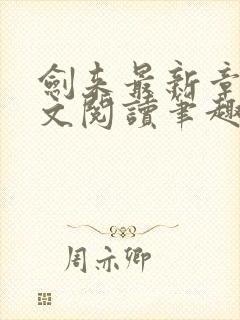 劍來最新章
文閱讀筆趣
周亦卿